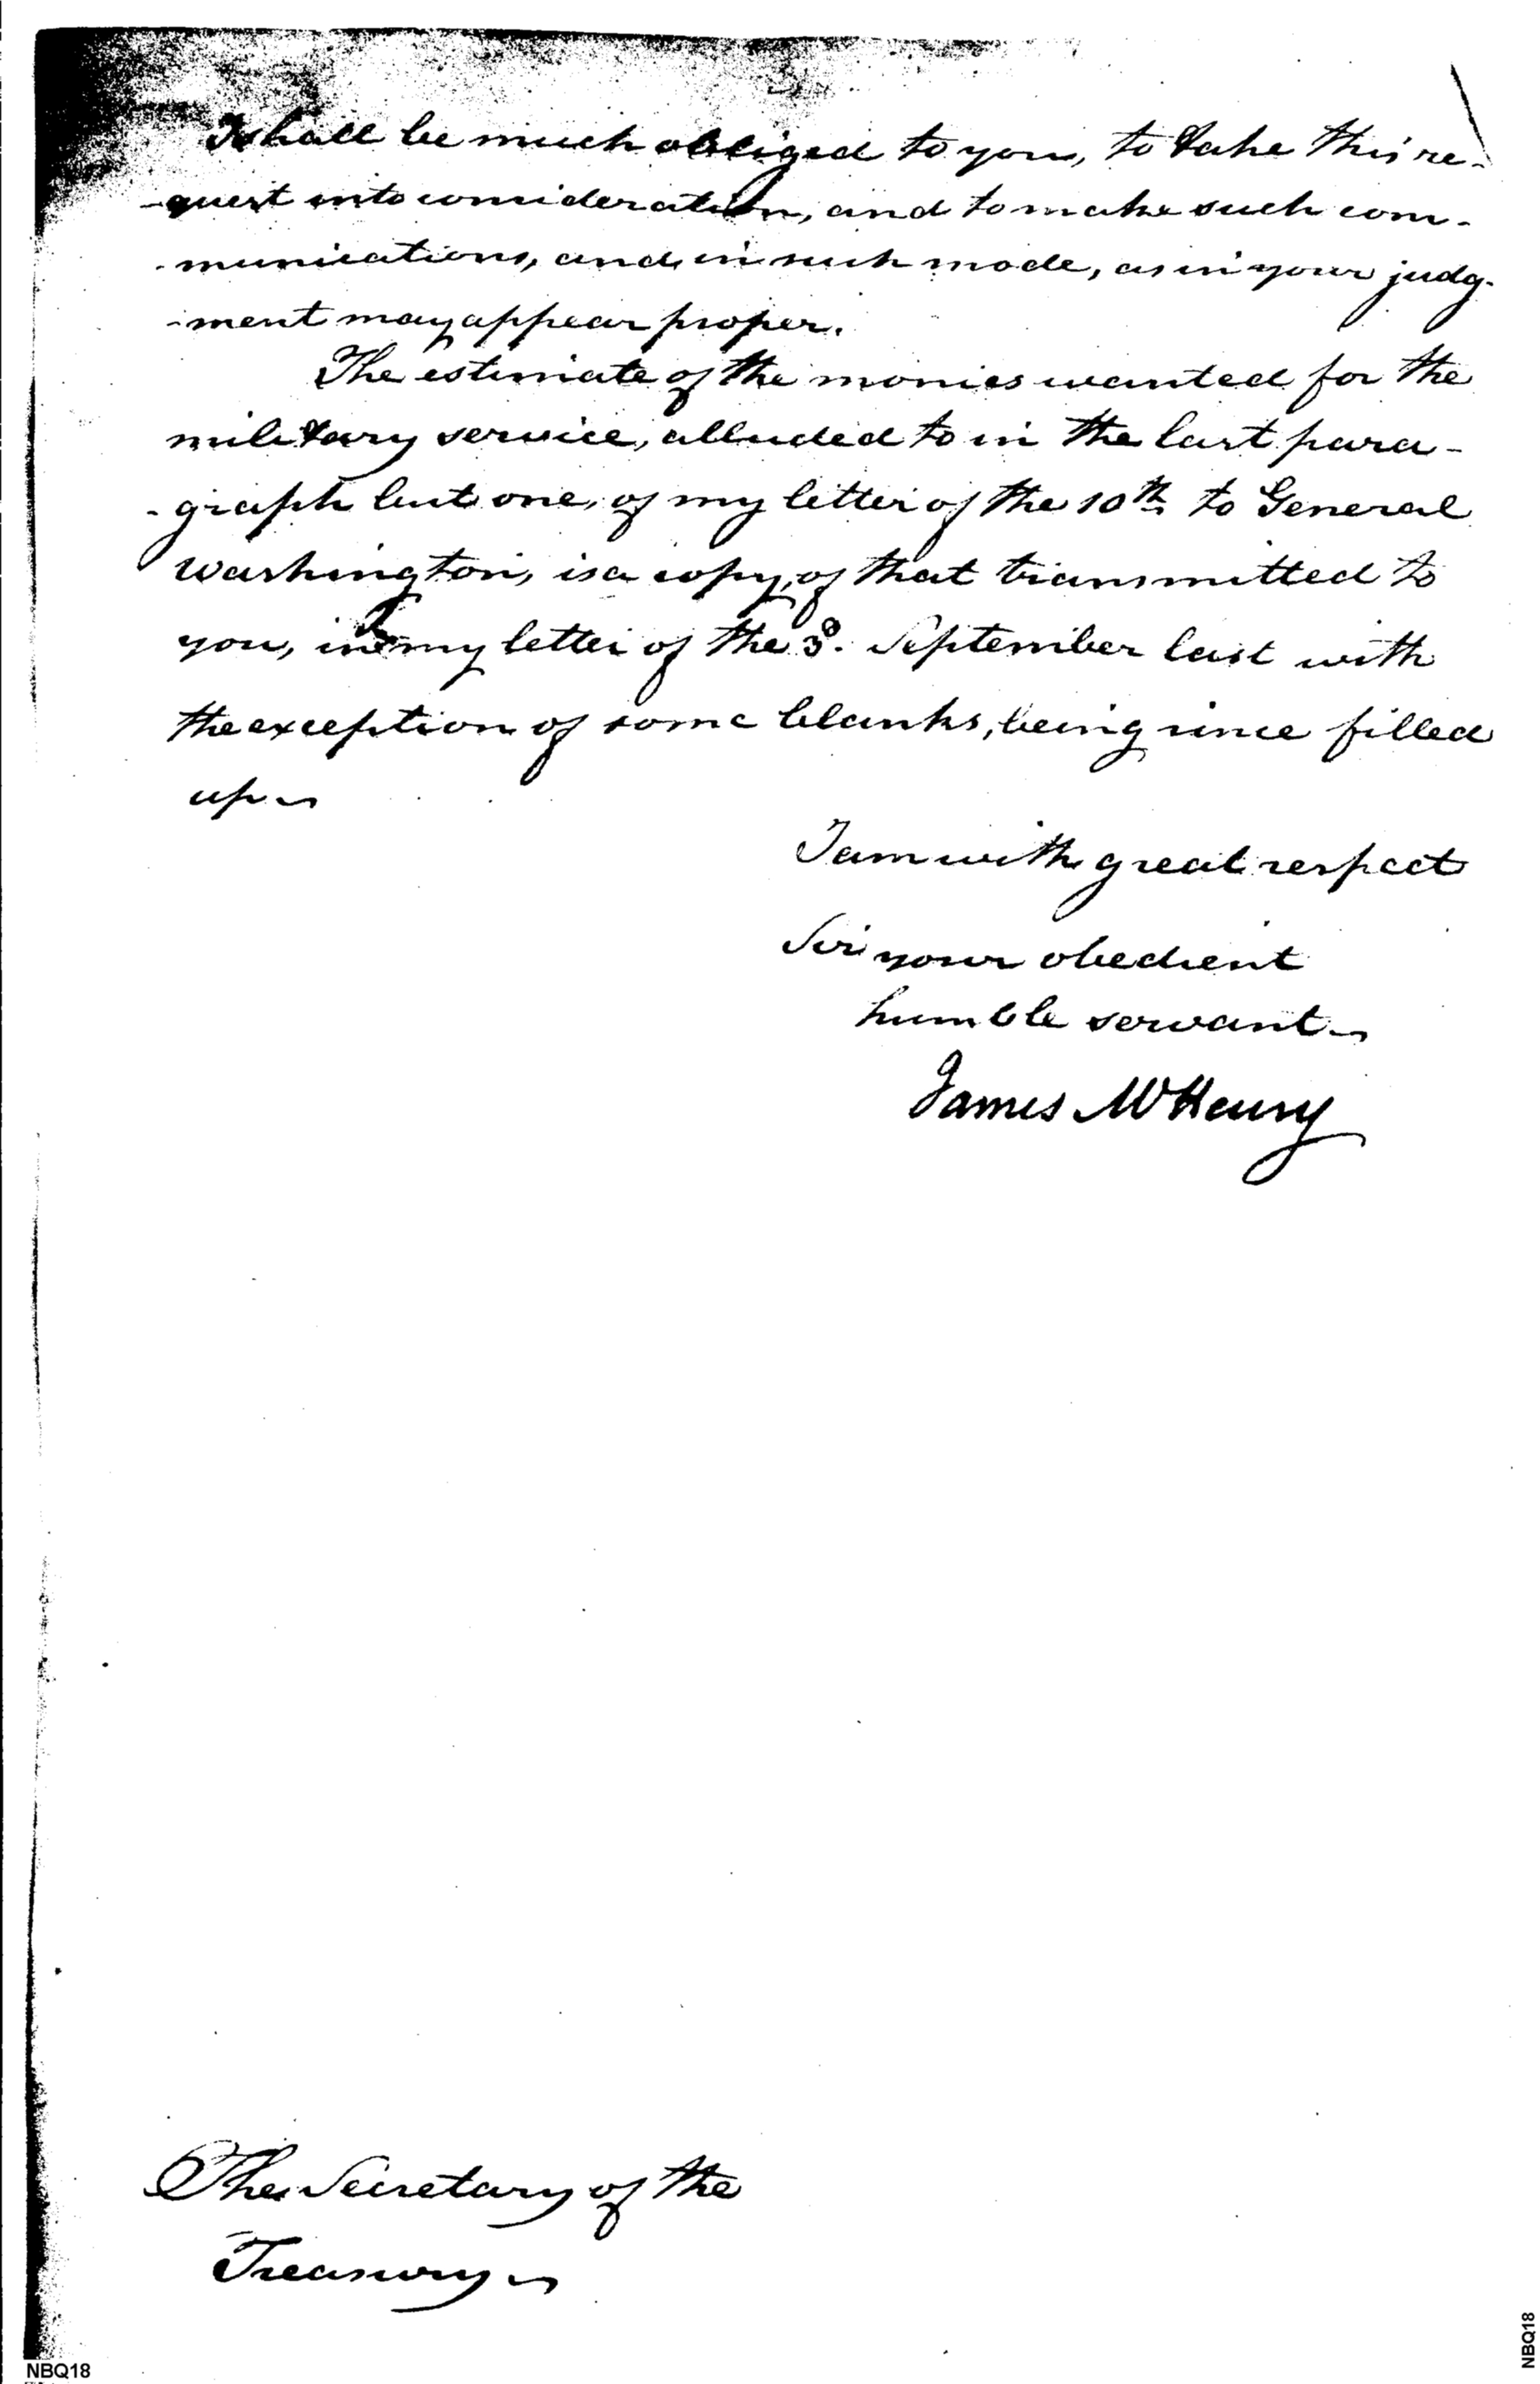 I shall be much obliged to you, to take this re-
-quest into consideration, and to make such com-
-munications, and in such mode, as in your judg-
-ment may appear proper.
The estimate of the monies wanted for the
military service, alluded to in the last para-
-graph but one, of my letter of the 10th to General
Washington, is a copy, of that transmitted to
you, in my letter of the September last with
the exception of some blanks, being since filled
up
I am with great respect
Sir your obedient
humble servant
James McHenry
The Secretary of the
Treasury
NBQ18
NBQ18